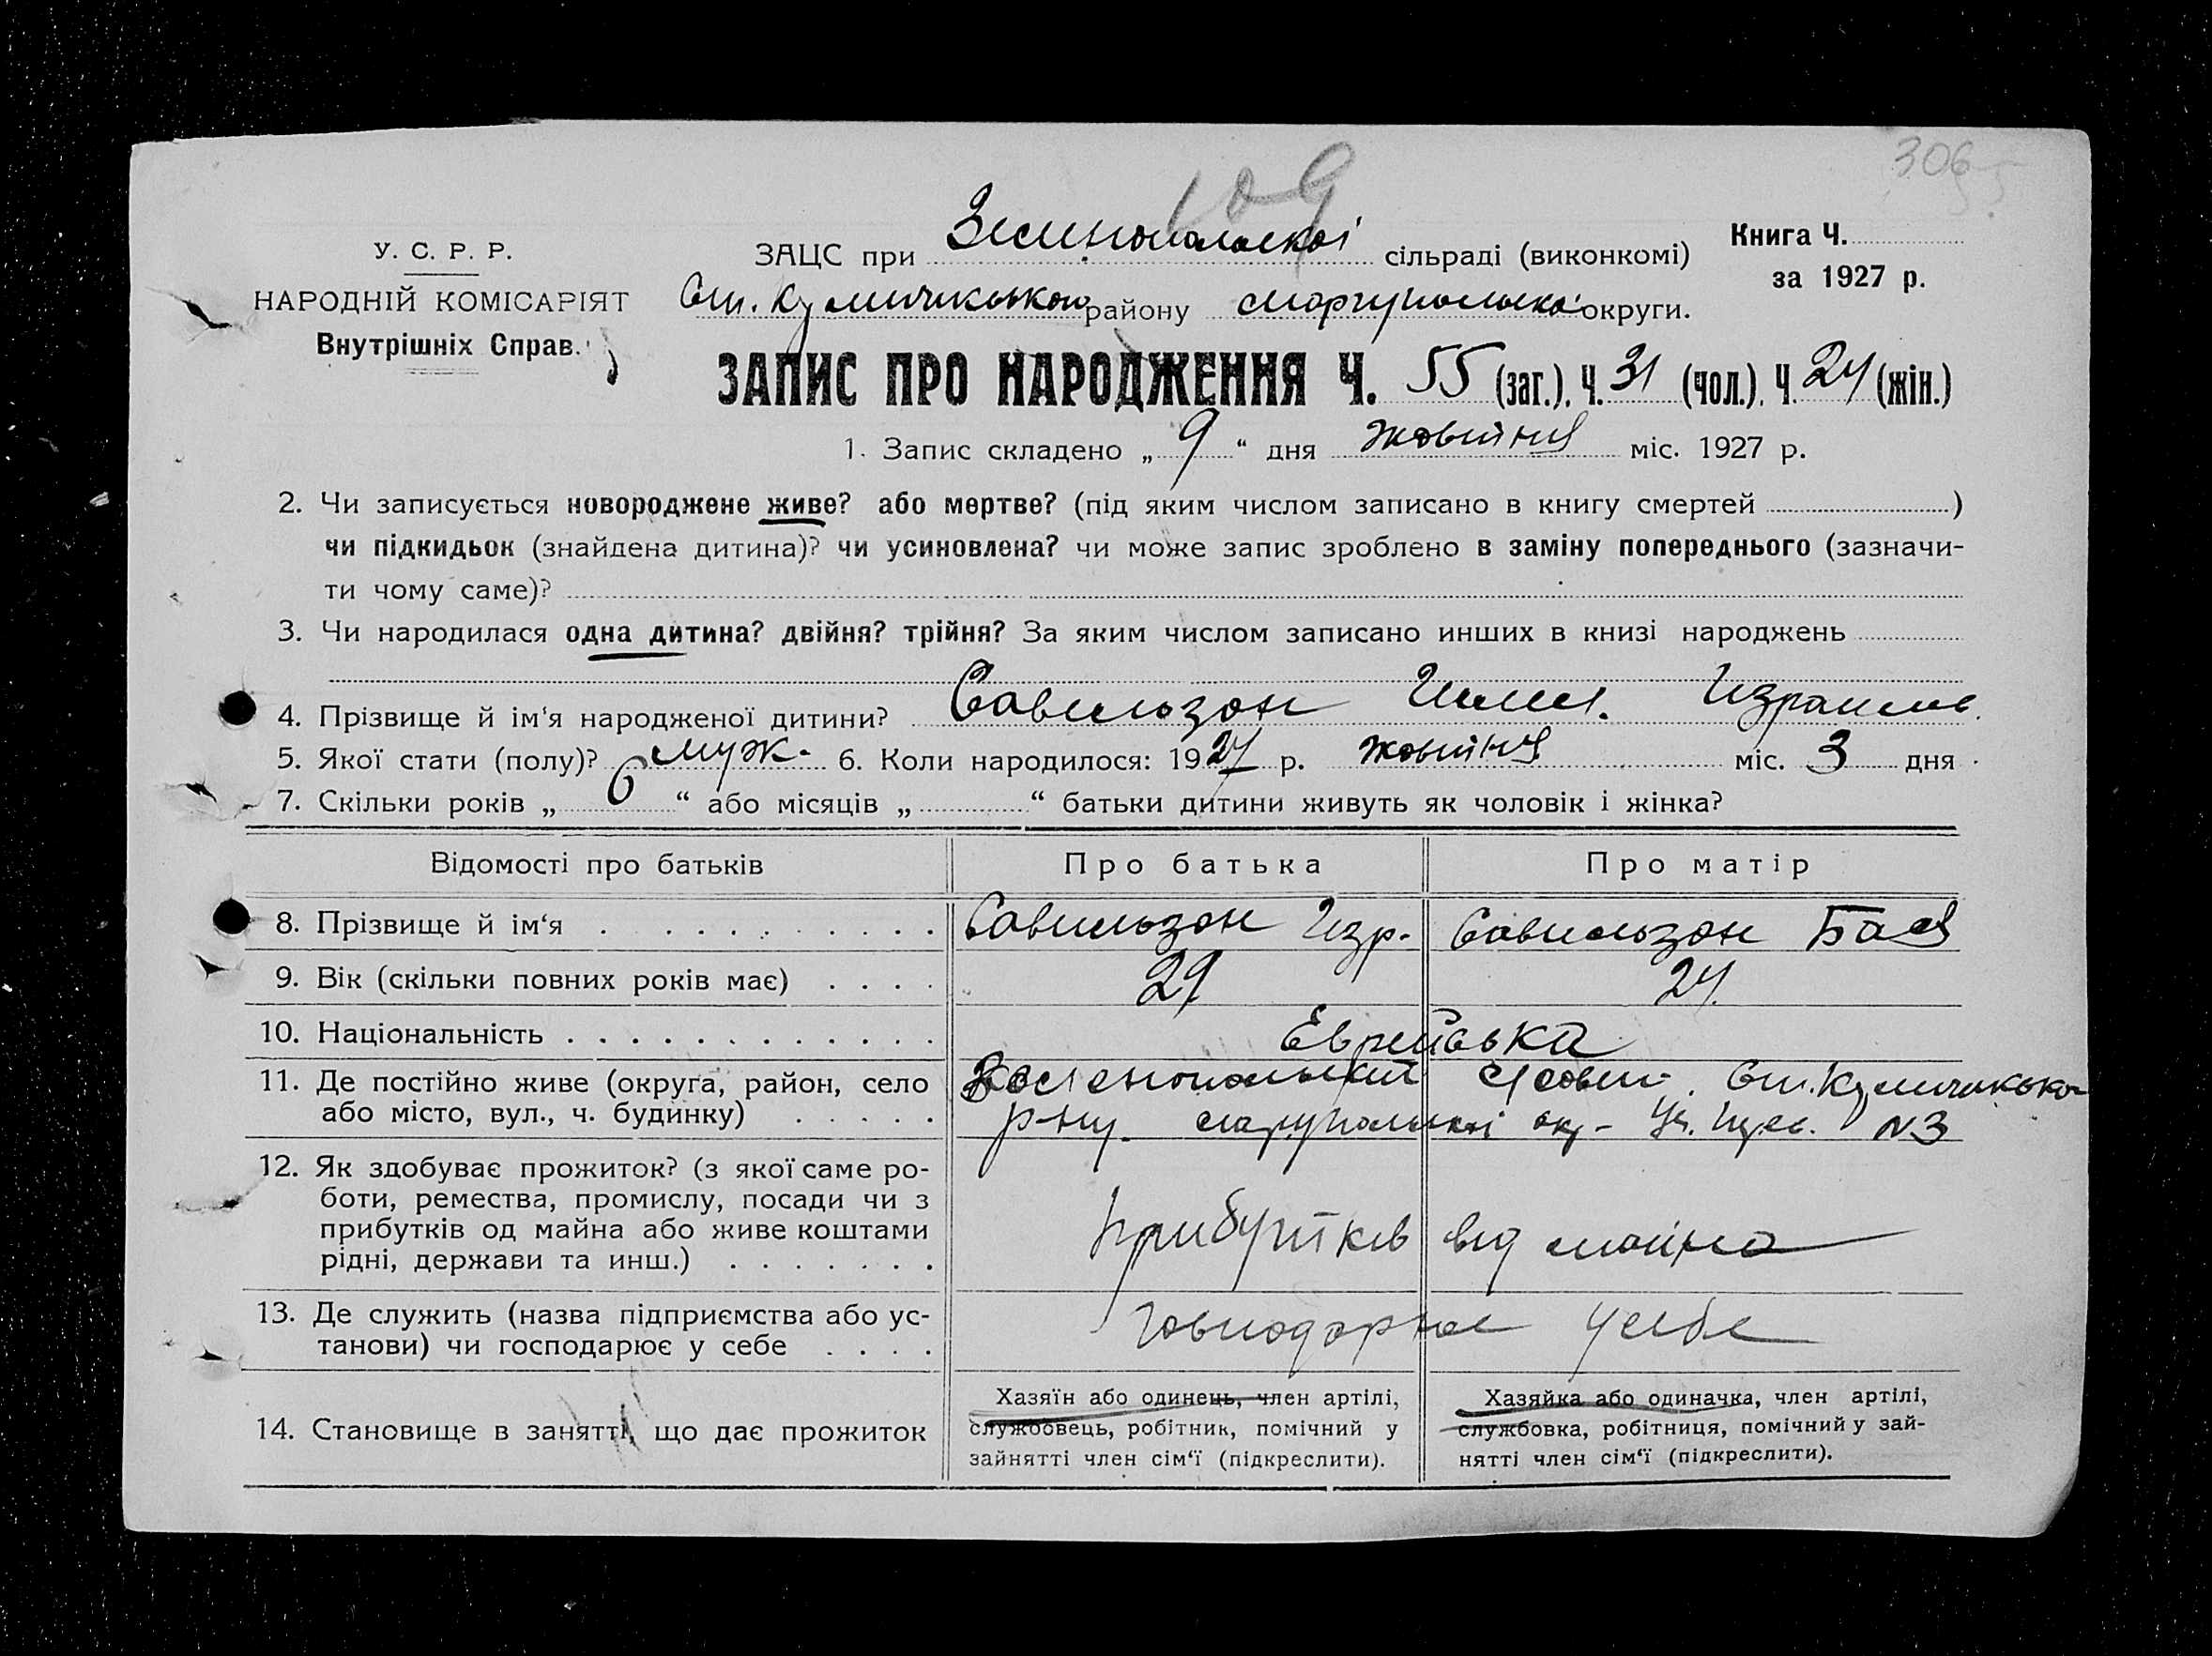 306
109
У. С. Р. Р.
НАРОДНІЙ КОМІСАРІЯТ
Внутрішніх Справ.
ЗАЦС при Зеленопольскої сільраді (виконкомі)
Ст. Кременчикського району Маріупольської округи.
Книга Ч.
за 1927 р.
ЗАПИС ПРО НАРОДЖЕННЯ Ч. 55 (заг.). Ч. 31 (чол.). Ч. 24 (жін.)
1. Запис складено „ 9 “ дня жовтня міс. 1927 р.
2. Чи записується новороджене живе? або мертве? (під яким числом записано в книгу смертей )
чи підкидьок (знайдена дитина)? чи усиновлена? чи може запис зроблено в заміну попереднього (зазначи-
ти чому саме)?
3. Чи народилася одна дитина? двійня? трійня? За яким числом записано инших в книзі народжень
4. Прізвище й ім‘я народженої дитини? Савельзон Израилев.
5. Якої стати (полу)? муж. 6. Коли народилося: 1927 р. жовтня міс. 3 дня
7. Скільки років „ 6 “ або місяців „ “ батьки дитини живуть як чоловік і жінка?
Відомості про батьків Про батька Про матір
8. Прізвище й ім‘я Савельзон Изр. Савельзон Бася
9. Вік (скільки повних років має) 29 24
10. Національність Еврейська
11. Де постійно живе (округа, район, село
або місто, вул., ч. будинку)
р-ну окр. N3
12. Як здобуває прожиток? (з якої саме ро-
боти, ремества, промислу, посади чи з
прибутків од майна або живе коштами
рідні, держави та инш.)
прибутків від майна
13. Де служить (назва підприємства або ус-
танови) чи господарює у себе
господарює у себе
14. Становище в занятті, що дає прожиток
Хазяїн або одинець, член артілі,
службовець, робітник, помічний у
зайнятті член сім‘ї (підкреслити).
Хазяйка або одиначка, член артілі,
службовка, робітниця, помічний у зай-
нятті член сім‘ї (підкреслити).